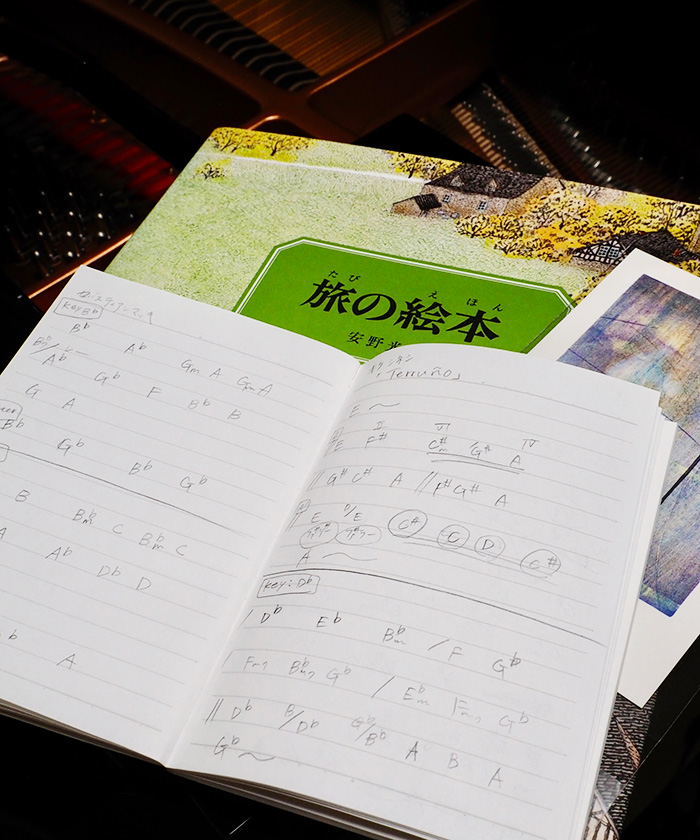 旅の絵本
たび えほん
安野光
key B♭
B♭
A♭ A♭ Gm A Gm A
G♭ F B♭ B
G A
B♭ G♭ B♭ G♭
B B♭m C B♭m C
A A♭ D♭ D
♭ A
「Terruño」
E 〜
E F# C#m G# A
II VI IV
// G# C# A // F# G# A
E D/E C# C D C#
A 〜
key:D♭
/ D♭ E♭ B♭m / F G♭
Fm7 B♭m7 G♭ / E♭m Fm7 G♭
// D♭ B/D♭ G♭/B♭ A B A
G♭ 〜